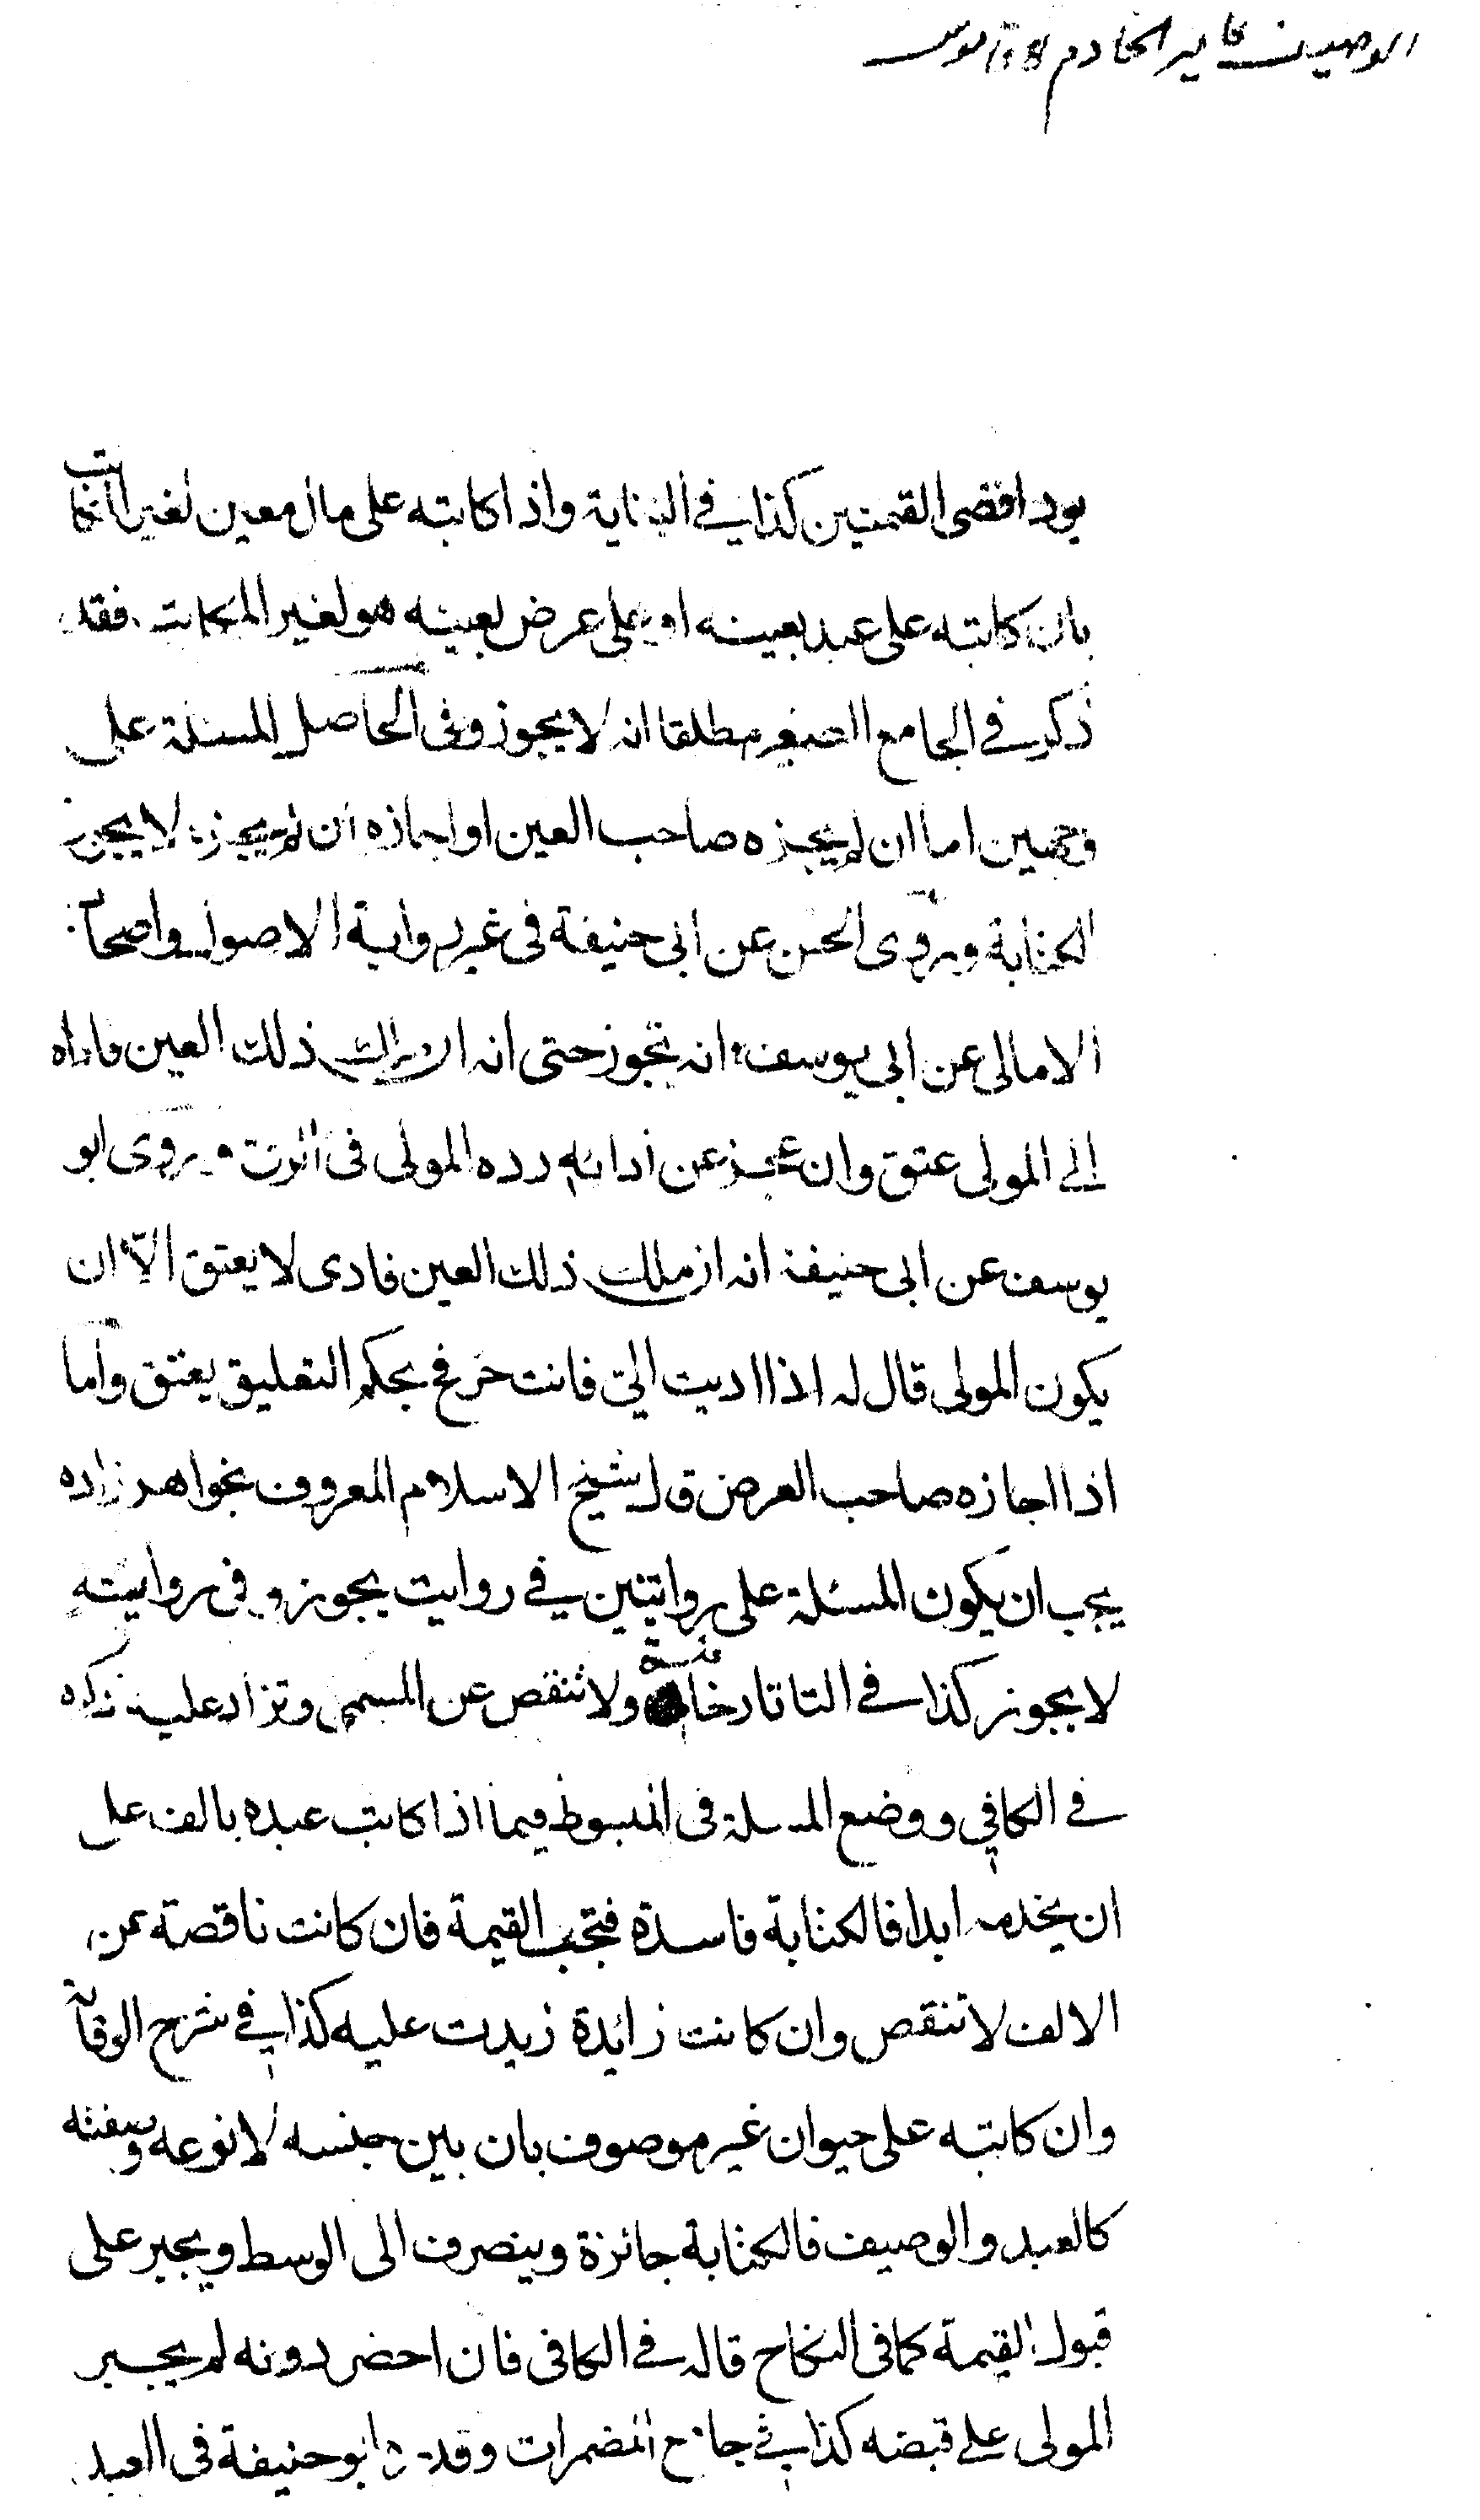 الوصيف كامير الخادم ١٢ قاموس
يود اقصى القيمتين كذا في البناية واذا كاتبه على مال معين لغير المكاتب
بان كاتبه على عبد بعينه او على عرض بعينه هو لغير المكاتب فقد
ذكر في الجامع الصغير مطلقا انه لا يجوز وفى الحاصل المسئلة على
وجهين اما ان لم يجزه صاحب العين او اجازه ان لم يجزه لا يجوز
الكتابة وروى الحسن عن ابى حنيفة فى غير رواية الاصول واصحاب
الامالى عن ابى يوسف انه تجوز حتى انه ان ملك ذلك العين فاداه
الى المولى عتق وان عجز عن ادائه رده المولى فى الرق وروى ابو
يوسف عن ابى حنيفة انه ان ملك ذلك العين فادى لا يعتق الا ان
يكون المولى قال له اذا اديت الىّ فانت حر فح بحكم التعليق يعتق واما
اذا اجازه صاحب العرض قال شيخ الاسلام المعروف بخواهر زاده
يجب ان يكون المسئلة على روايتين في روايت يجوز و فى روايته
لا يجوز كذا في التاتارخانية ولا تنقص عن المسمى وتزاد عليه ذكره
في الكافي ووضع المسئلة فى المبسوط فيما اذا كاتب عبده بالف على
ان يخدمه ابدا فالكتابة فاسدة فتجب القيمة فان كانت ناقصة عن
الالف لا تنقص وان كانت زائدة زيدت عليه كذا في شرح الوقاية
وان كاتبه على حيوان غير موصوف بان بين جنسه لا نوعه وصفته
كالعبد والوصيف فالكتابة جائزة وينصرف الى الوسط ويجبر على
قبول القيمة كما فى النكاح قاله في الكافى فان احضر دونه لم يجبر
المولى على قبضه كذا في جامع المضمرات وقدر ابو حنيفة فى العبد